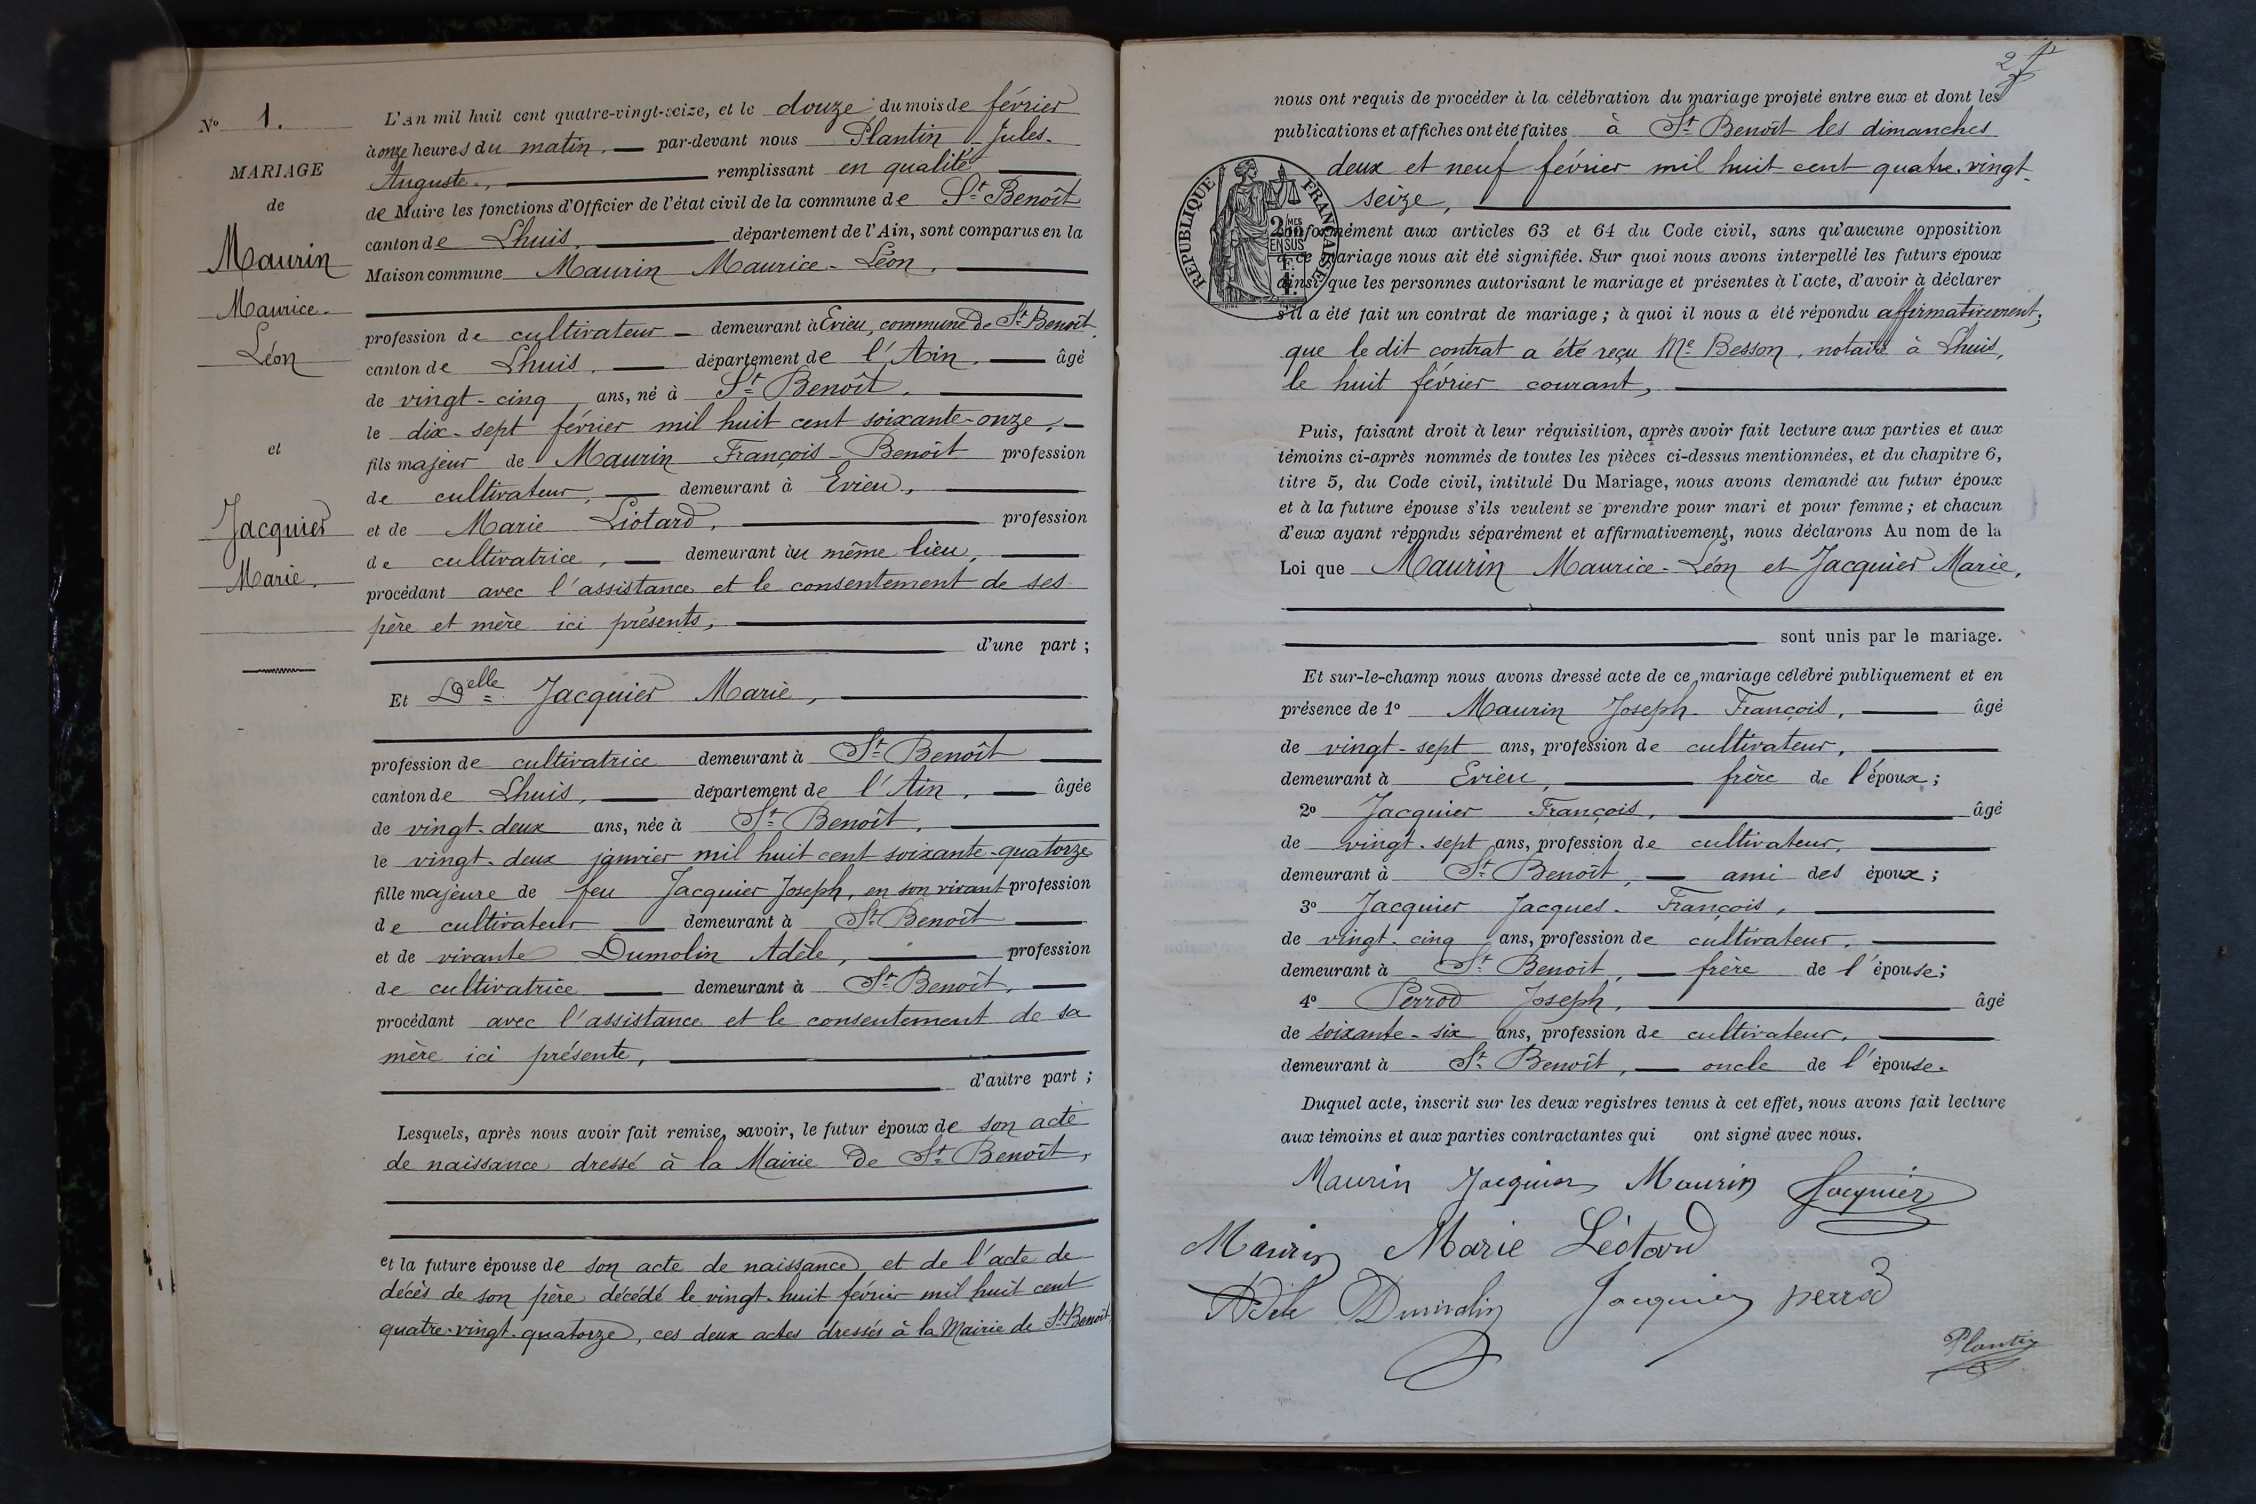 N° 1.
MARIAGE
de
Maurin
Maurice-
Léon
et
Jacquier
Marie.
L'An mil huit cent quatre-vingt-seize, et le douze du mois de février
à onze heures du matin. par-devant nous Plantin Jules-
Auguste, remplissant en qualité
de Maire les fonctions d'Officier de l'état civil de la commune de St Benoît
canton de Lhuis, département de l'Ain, sont comparus en la
Maison commune Maurin Maurice-Léon,
profession de cultivateur demeurant à Evieu, commune de St Benoît
canton de Lhuis. département de l'Ain. âgé
de vingt-cinq ans, né à St Benoît.
le dix-sept février mil huit cent soixante-onze,
fils majeur de Maurin François-Benoît profession
de cultivateur, demeurant à Evieu,
et de Marie Liotard, profession
de cultivatrice, demeurant au même lieu,
procédant avec l'assistance et le consentement de ses
père et mère ici présents,
d'une part ;
Et Delle Jacquier Marie,
profession de cultivatrice demeurant à St Benoît
canton de Lhuis, département de l'Ain, âgée
de vingt-deux ans, née à St Benoît,
le vingt-deux janvier mil huit cent soixante-quatorze
fille majeure de feu Jacquier Joseph, en son vivant profession
de cultivateur demeurant à St Benoît
et de vivante Dumolin Adèle, profession
de cultivatrice demeurant à St Benoît,
procédant avec l'assistance et le consentement de sa
mère ici présente,
d'autre part ;
Lesquels, après nous avoir fait remise, savoir, le futur époux de son acte
de naissance dressé à la Mairie de St Benoît,
et la future épouse de son acte de naissance, et de l'acte de
décès de son père décédé le vingt-huit février mil huit cent
quatre-vingt-quatorze, ces deux actes dressés à la Mairie de St Benoît,
2
nous ont requis de procéder à la célébration du mariage projeté entre eux et dont les
publications et affiches ont été faites à St Benoît les dimanches
deux et neuf février mil huit cent quatre-vingt-
seize,
RÉPUBLIQUE FRANÇAISE
2 MES
EN SUS
conformément aux articles 63 et 64 du Code civil, sans qu'aucune opposition
à ce mariage nous ait été signifiée. Sur quoi nous avons interpellé les futurs époux
ainsi que les personnes autorisant le mariage et présentes à l'acte, d'avoir à déclarer
s'il a été fait un contrat de mariage ; à quoi il nous a été répondu affirmativement;
que le dit contrat a été reçu Me Besson, notaire à Lhuis,
le huit février courant,
Puis, faisant droit à leur réquisition, après avoir fait lecture aux parties et aux
témoins ci-après nommés de toutes les pièces ci-dessus mentionnées, et du chapitre 6,
titre 5, du Code civil, intitulé Du Mariage, nous avons demandé au futur époux
et à la future épouse s'ils veulent se prendre pour mari et pour femme ; et chacun
d'eux ayant répondu séparément et affirmativement, nous déclarons Au nom de la
Loi que Maurin Maurice-Léon et Jacquier Marie,
sont unis par le mariage.
Et sur-le-champ nous avons dressé acte de ce mariage célébré publiquement et en
présence de 1° Maurin Joseph-François, âgé
de vingt-sept ans, profession de cultivateur,
demeurant à Evieu, frère de l'époux ;
2° Jacquier François, âgé
de vingt-sept ans, profession de cultivateur,
demeurant à St Benoît, ami des époux ;
3° Jacquier Jacques-François,
de vingt-cinq ans, profession de cultivateur,
demeurant à St Benoît, frère de l'épouse ;
4° Perrod Joseph, âgé
de soixante-six ans, profession de cultivateur,
demeurant à St Benoît, oncle de l'épouse.
Duquel acte, inscrit sur les deux registres tenus à cet effet, nous avons fait lecture
aux témoins et aux parties contractantes qui ont signé avec nous.
Maurin Jacquier Maurin Jacquier
Maurin Marie Léotard
Adèle Dumolin Jacquier perrod
Plantin